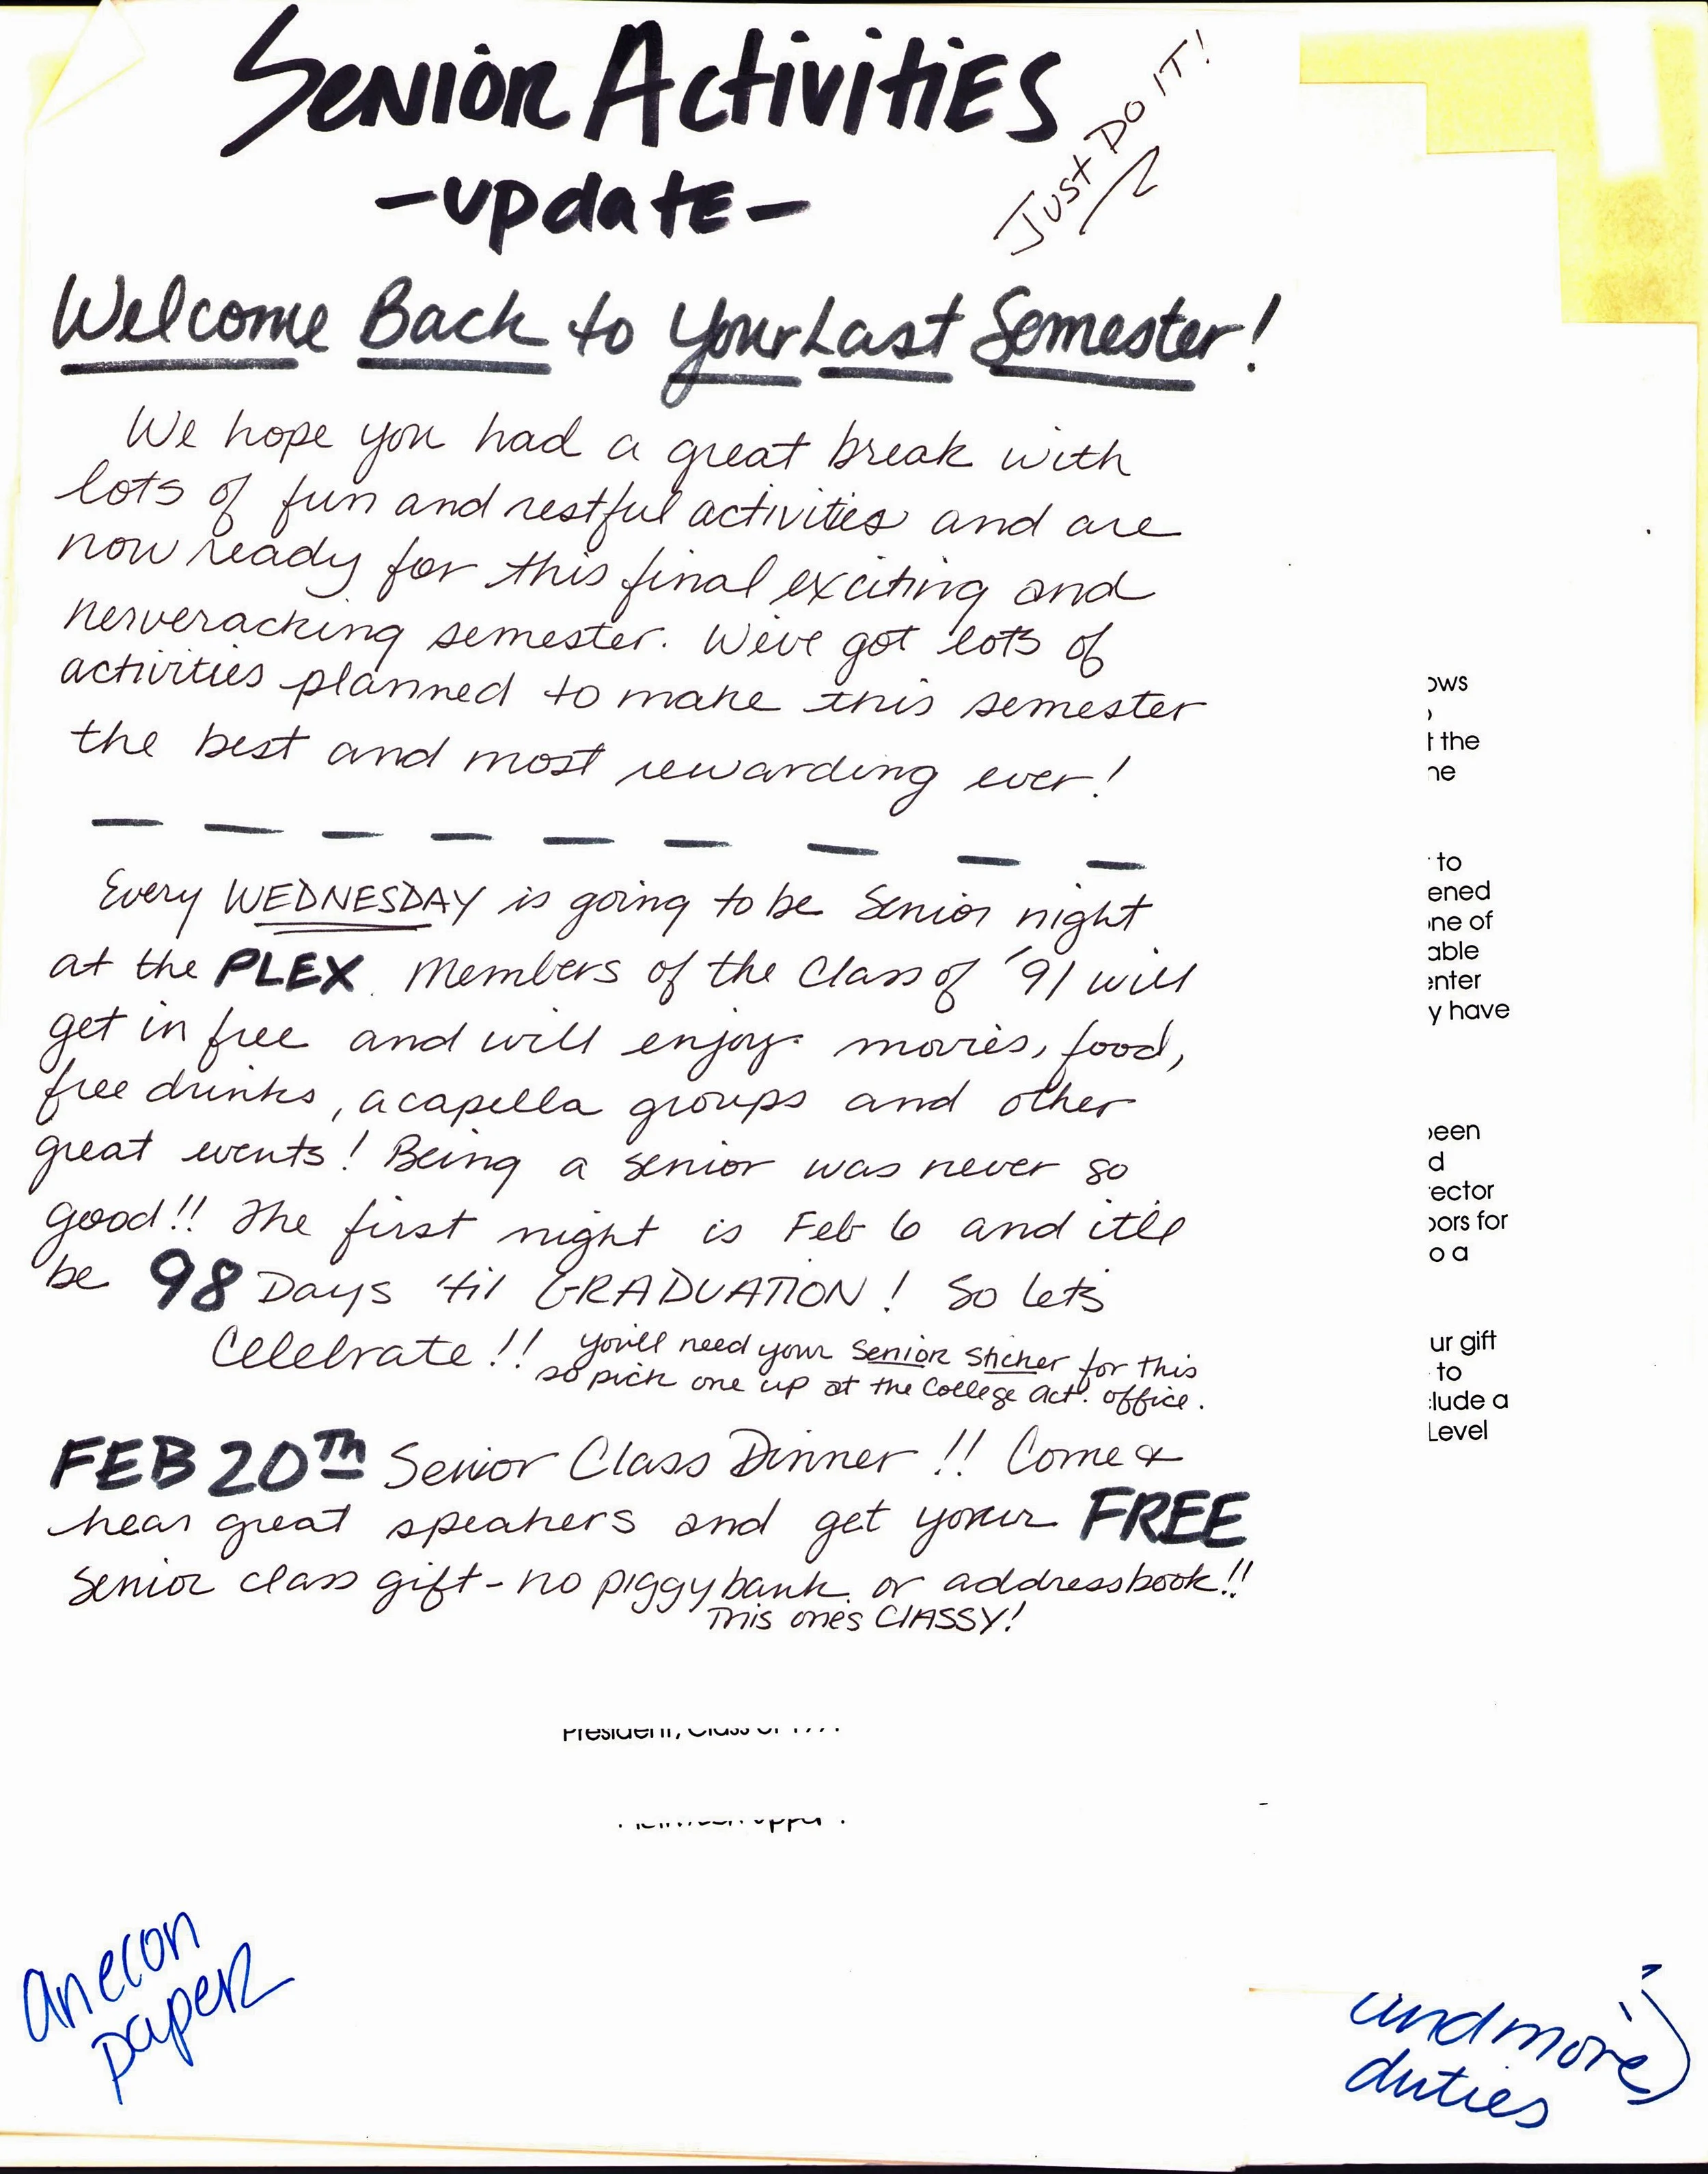 Senior Activities
Just DO IT!
-update-
Welcome Back to Your Last Semester!
We hope you had a great break with
lots of fun and restful activities and are
now ready for this final exciting and
nerveracking semester. We've got lots of
activities planned to make this semester
the best and most rewarding ever!
Every WEDNESDAY is going to be Senior night
at the PLEX. Members of the Class of '91 will
get in free and will enjoy movies, food,
free drinks, acapella groups and other
great events! Being a senior was never so
good!! The first night is Feb 6 and it'll
be 98 Days 'til GRADUATION! So let's
Celebrate!! You'll need your Senior Sticker for this
so pick one up at the College Act. office.
FEB 20th Senior Class Dinner!! Come &
hear great speakers and get your FREE
Senior class gift - no piggybank or addressbook!!
This one's CLASSY!
ows
t the
ne
to
ened
ne of
able
enter
y have
een
d
ector
oors for
o a
ur gift
to
clude a
Level
President, Class of
an econ
paper
and more
duties